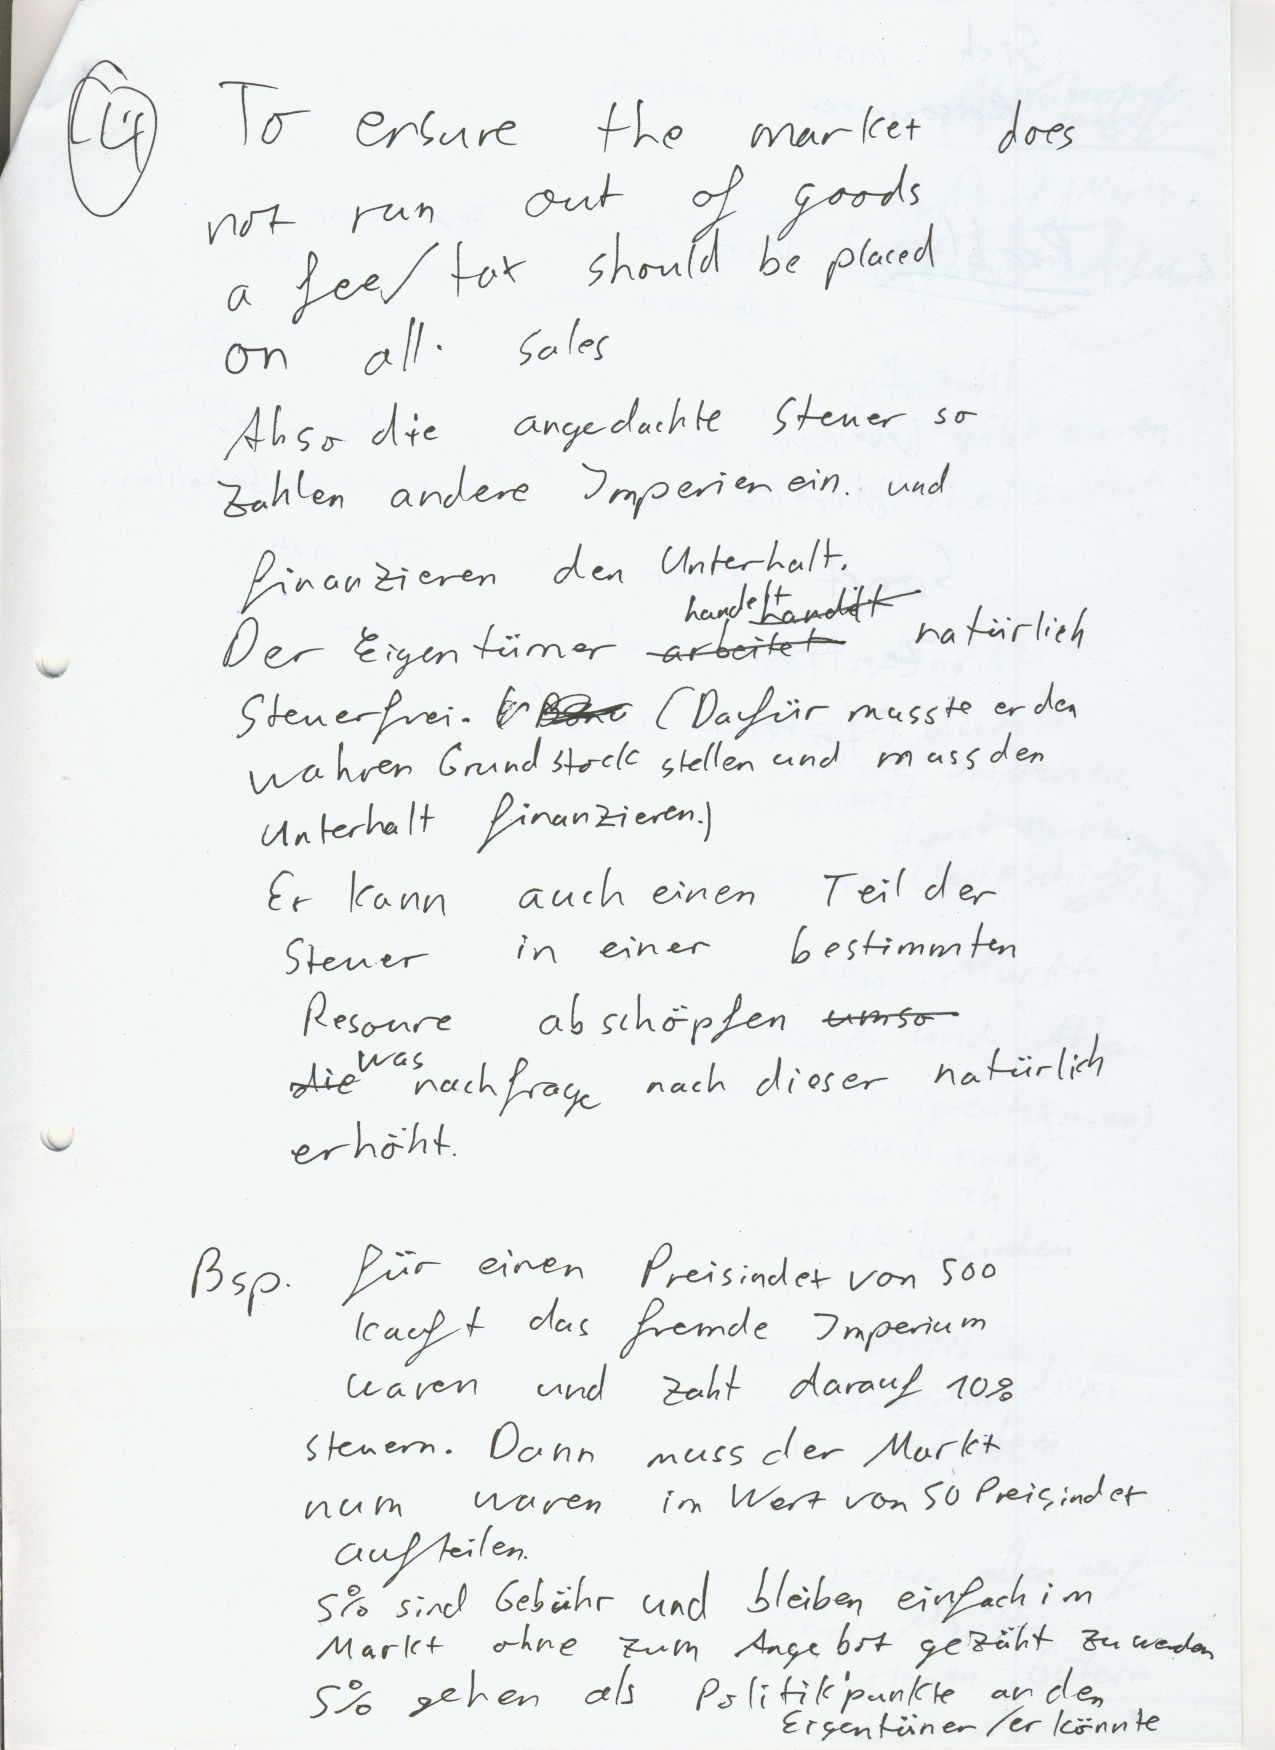 14
To ensure the market does
not run out of goods
a fee/tax should be placed
on all. sales
Also die angedachte Steuer so
zahlen andere Imperien ein. und
finanzieren den Unterhalt.
handelt handelt
Der Eigentümer arbeitet natürlich
Steuerfrei. (Dafür musste er den
wahren Grundstock stellen und muss den
Unterhalt finanzieren.)
Er kann auch einen Teil der
Steuer in einer bestimmten
Resoure abschöpfen umso
die was nachfrage nach dieser natürlich
erhöht.
Bsp. für einen Preisindex von 500
kauft das fremde Imperium
waren und zaht darauf 10%
steuern. Dann muss der Markt
num waren im Wert von 50 Preisindex
aufteilen.
5% sind Gebühr und bleiben einfach im
Markt ohne zum Angebot gezäht zu werden
5% gehen als Politikpunkte an den
Eigentüner/er könnte